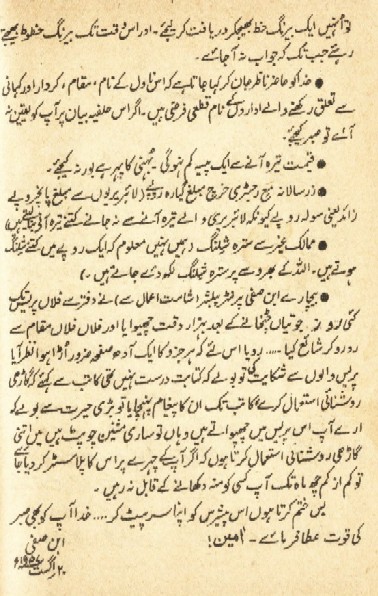 تو اُنہیں ایک بیرنگ خط بھیجکر دریافت کر لیجئے۔ اور اس وقت تک بیرنگ خطوط بھیجتے
رہئے جب تک کہ جواب نہ آجائے۔
● خدا کو حاضر ناظر جان کر کہا جاتا ہے کہ اس ناول کے نام، مقام، کردار اور کہانی
سے تعلق رکھنے والے اداروں کے نام قطعی فرضی ہیں۔ اگر اس حلفیہ بیان پر آپ کو یقین نہ
آئے تو صبر کیجئے۔
● قیمت تیرہ آنے سے ایک پیسہ کم نہ ہوگی۔ بُہنی کا پہر ہے بور نہ کیجئے۔
● زرِ سالانہ مع رجسٹری خرچ مبلغ گیارہ روپئے (لائبریریوں سے مبلغ پانچ روپے
زائد یعنی سولہ روپے کیونکہ لائبریری والے تیرہ آنے سے نہ جانے کتنے تیرہ آنے بناتے ہیں)
● ممالک غیر سے سترہ شلنگ (ہمیں نہیں معلوم کہ ایک روپے میں کتنے شلنگ
ہوتے ہیں۔ اللہ کے بھروسے پر سترہ شلنگ لکھ دئے جاتے ہیں۔)
● بیچارے ابن صفی پرنٹر پبلشر (شامت اعمال سے) نے دفتر سے فلاں پریس تک
کئی روز جوتیاں چٹخانے کے بعد ہزار دقت چھپوایا اور فلاں فلاں مقام سے
رو رو کر شائع کیا..... رویا اس لئے کہ ہر جزو کا ایک آدھ صفحہ ضرور اُڑا ہوا نظر آیا
پریس والوں سے شکایت کی تو بولے کہ کتابت درست نہیں تھی کاتب سے کہئے کہ گاڑھی
روشنائی استعمال کرے! کاتب تک ان کا پیغام پہنچایا تو بڑی حیرت سے بولے کہ
ارے آپ اس پریس میں چھپواتے ہیں وہاں تو ساری مشینیں چوپٹ ہیں میں اتنی
گاڑھی روشنائی استعمال کرتا ہوں کہ اگر آپ کے چہرے پر اس کا پلاسٹر کر دیا جائے
تو کم از کم چھ ماہ تک آپ کسی کو منہ دکھانے کے قابل نہ رہیں۔
بس ختم کرتا ہوں اس پیشرس کو اپنا سر پیٹ کر.... خدا آپ کو بھی صبر
کی قوت عطا فرمائے۔ آمین!
ابن صفی
۲۰ اگست ۱۹۵۷ء